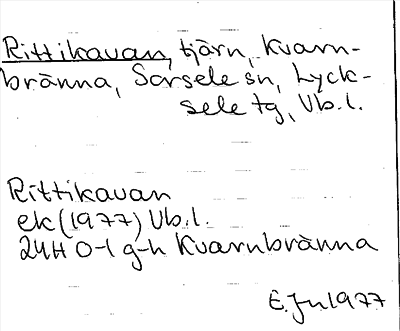 Rittikavan, tjärn, Kvarn-
bränna, Sorsele sn, Lyck-
sele tg, Vb.l.
Rittikavan
ek (1977) Vb.l.
24H 0-1 g-h Kvarnbränna
E.Jn 1977